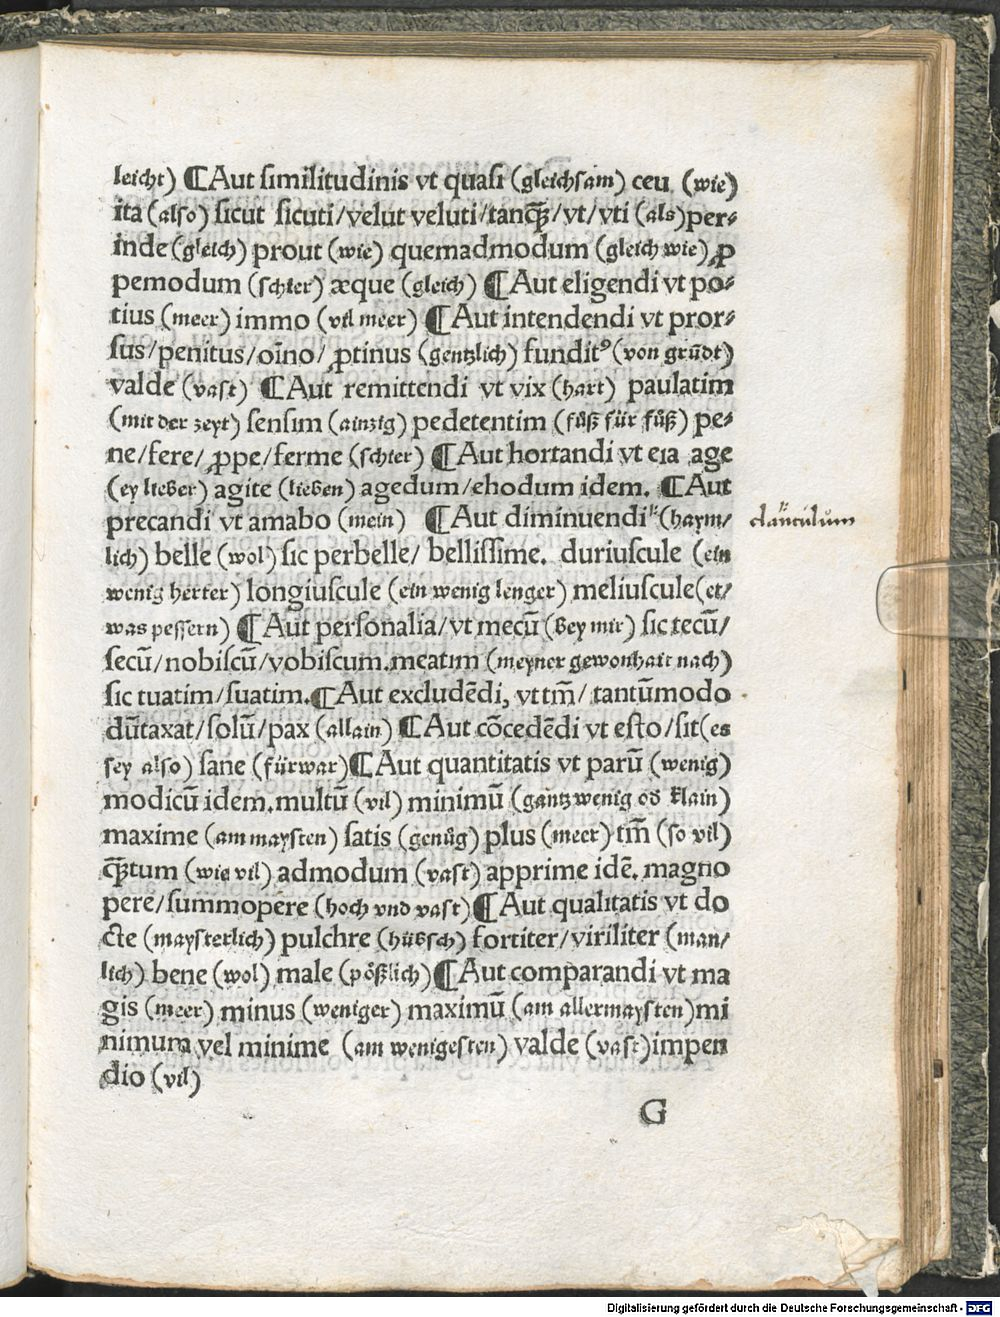 leicht) ¶Aut similitudinis vt quasi (gleichsam) ceu (wie)
ita (also) sicut sicuti/velut veluti/tanqꝫ/vt/vti (als)per⸗
inde (gleich) prout (wie) quemadmodum (gleich wie) ꝓ
pemodum (schier) æque (gleich) ¶Aut eligendi vt po⸗
tius (meer) immo (vil meer) ¶Aut intendendi vt pror⸗
sus/penitus/oīno/ ꝓtinus (gentzlich) funditꝰ (von grūdt)
valde (vast) ¶Aut remittendi vt vix (hart) paulatim
(mit der zeyt) sensim (ainzig) pedetentim (fůß für fůß) pe⸗
ne/fere/ ꝓpe/ferme (schier) ¶Aut hortandi vt eia age
(ey lieber) agite (lieben) agedum/ehodum idem. ¶Aut
precandi vt amabo (mein) ¶Aut diminuendi (haym/
clanculum
lich) belle (wol) sic perbelle/ bellissime. duriuscule (ein
wenig herter) longiuscule (ein wenig lenger) meliuscule(et/
was pessern) ¶Aut personalia/vt mecū (bey mir) sic tecū/
secū/nobiscū/vobiscum.meatim (meyner gewonhait nach)
sic tuatim/suatim.¶Aut excludēdi, vt tm̄/ tantūmodo
dūtaxat/solū/pax (allain) ¶Aut cōcedēdi vt esto/sit(es
sey also) sane (fürwar)¶Aut quantitatis vt parū (wenig)
modicū idem.multū (vil) minimū (gantz wenig od klain)
maxime (am maysten) satis (genůg) plus (meer) tm̄ (so vil)
qꝫtum (wie vil) admodum (vast) apprime idē. magno
pere/summopere (hoch vnd vast)¶Aut qualitatis vt do
cte (maysterlich) pulchre (hübsch) fortiter/viriliter (man/
lich) bene (wol) male (pößlich)¶Aut comparandi vt ma
gis (meer) minus (weniger) maximū (am allermaysten)mi
nimum vel minime (am wenigesten) valde (vast)impen
dio (vil)
G
Digitalisierung gefördert durch die Deutsche Forschungsgemeinschaft - DFG